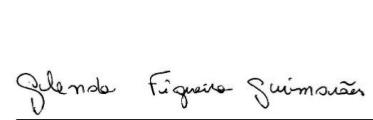 Glenda Figueira Guimarães